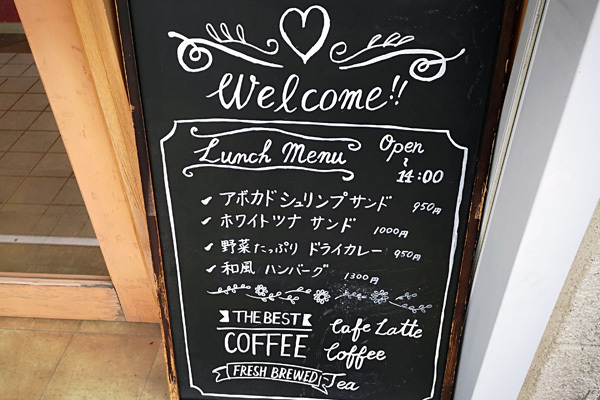 Welcome!!
Lunch Menu
Open
~
14:00
アボカドシュリンプサンド 950円
ホワイトツナ サンド 1000円
野菜たっぷり ドライカレー 950円
和風 ハンバーグ 1300円
THE BEST
COFFEE
FRESH BREWED
Cafe Latte
Coffee
Tea